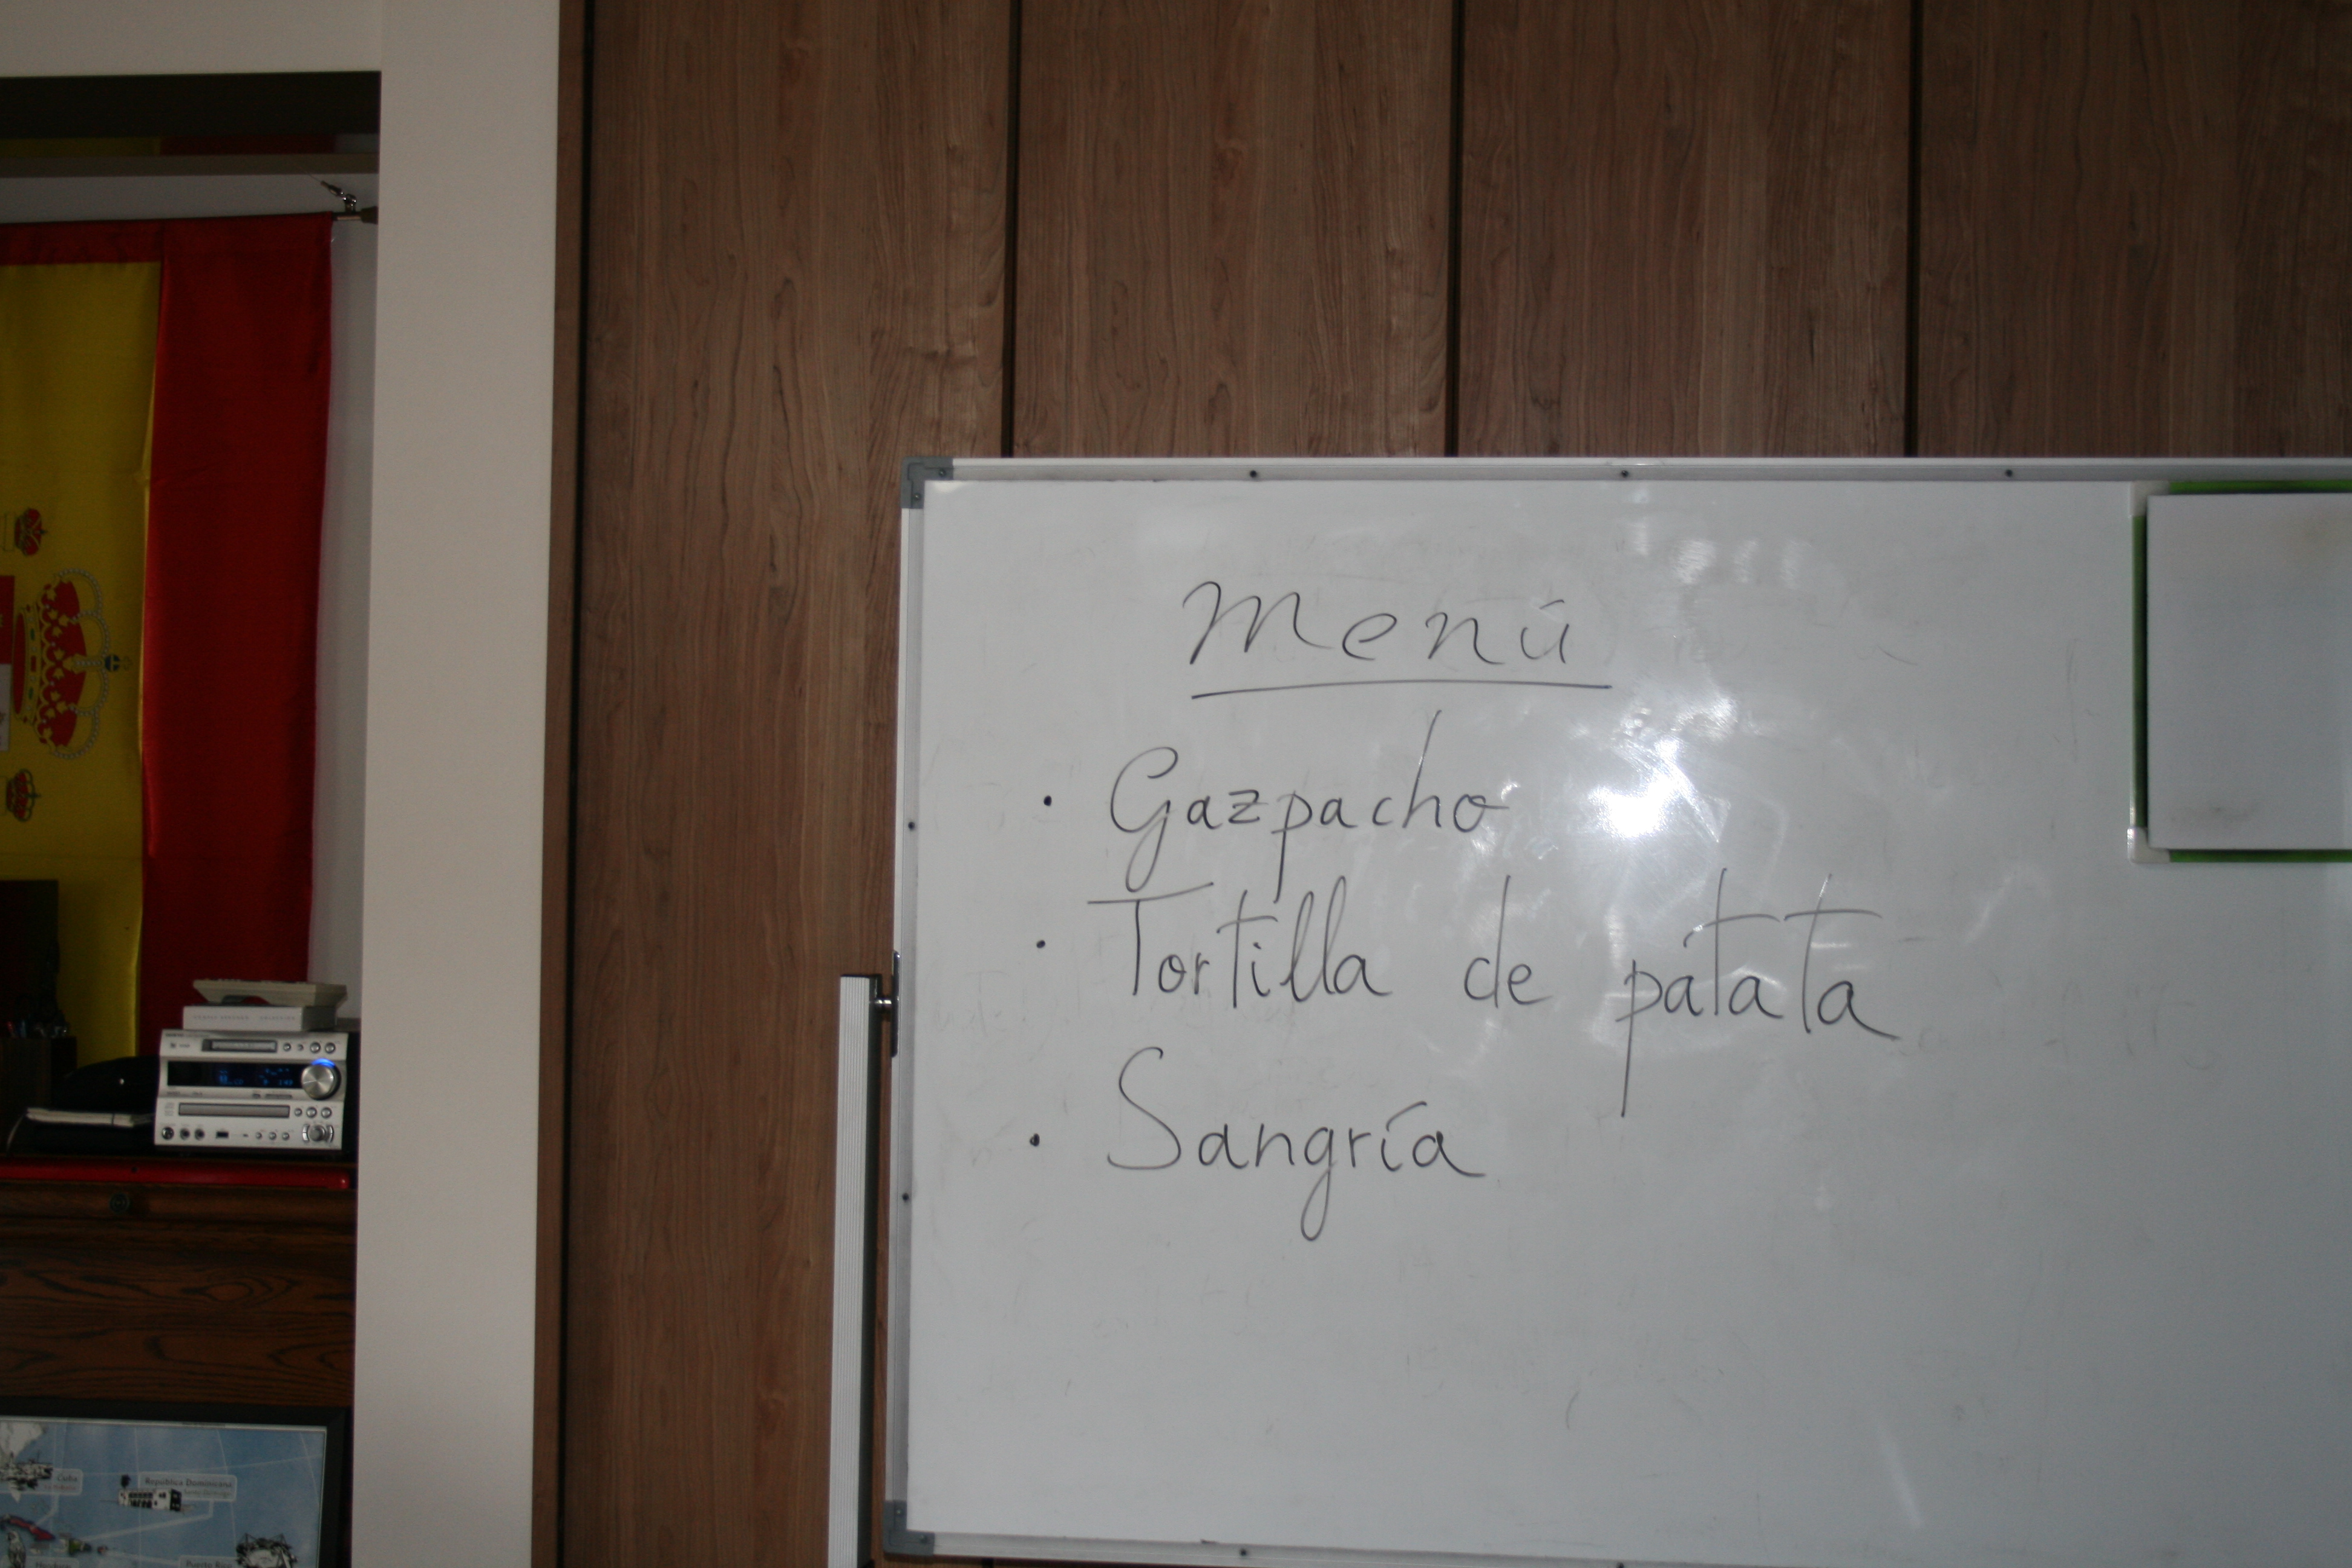 Menú
· Gazpacho
· Tortilla de patata
· Sangría
Cuba
República Dominicana
Puerto Rico